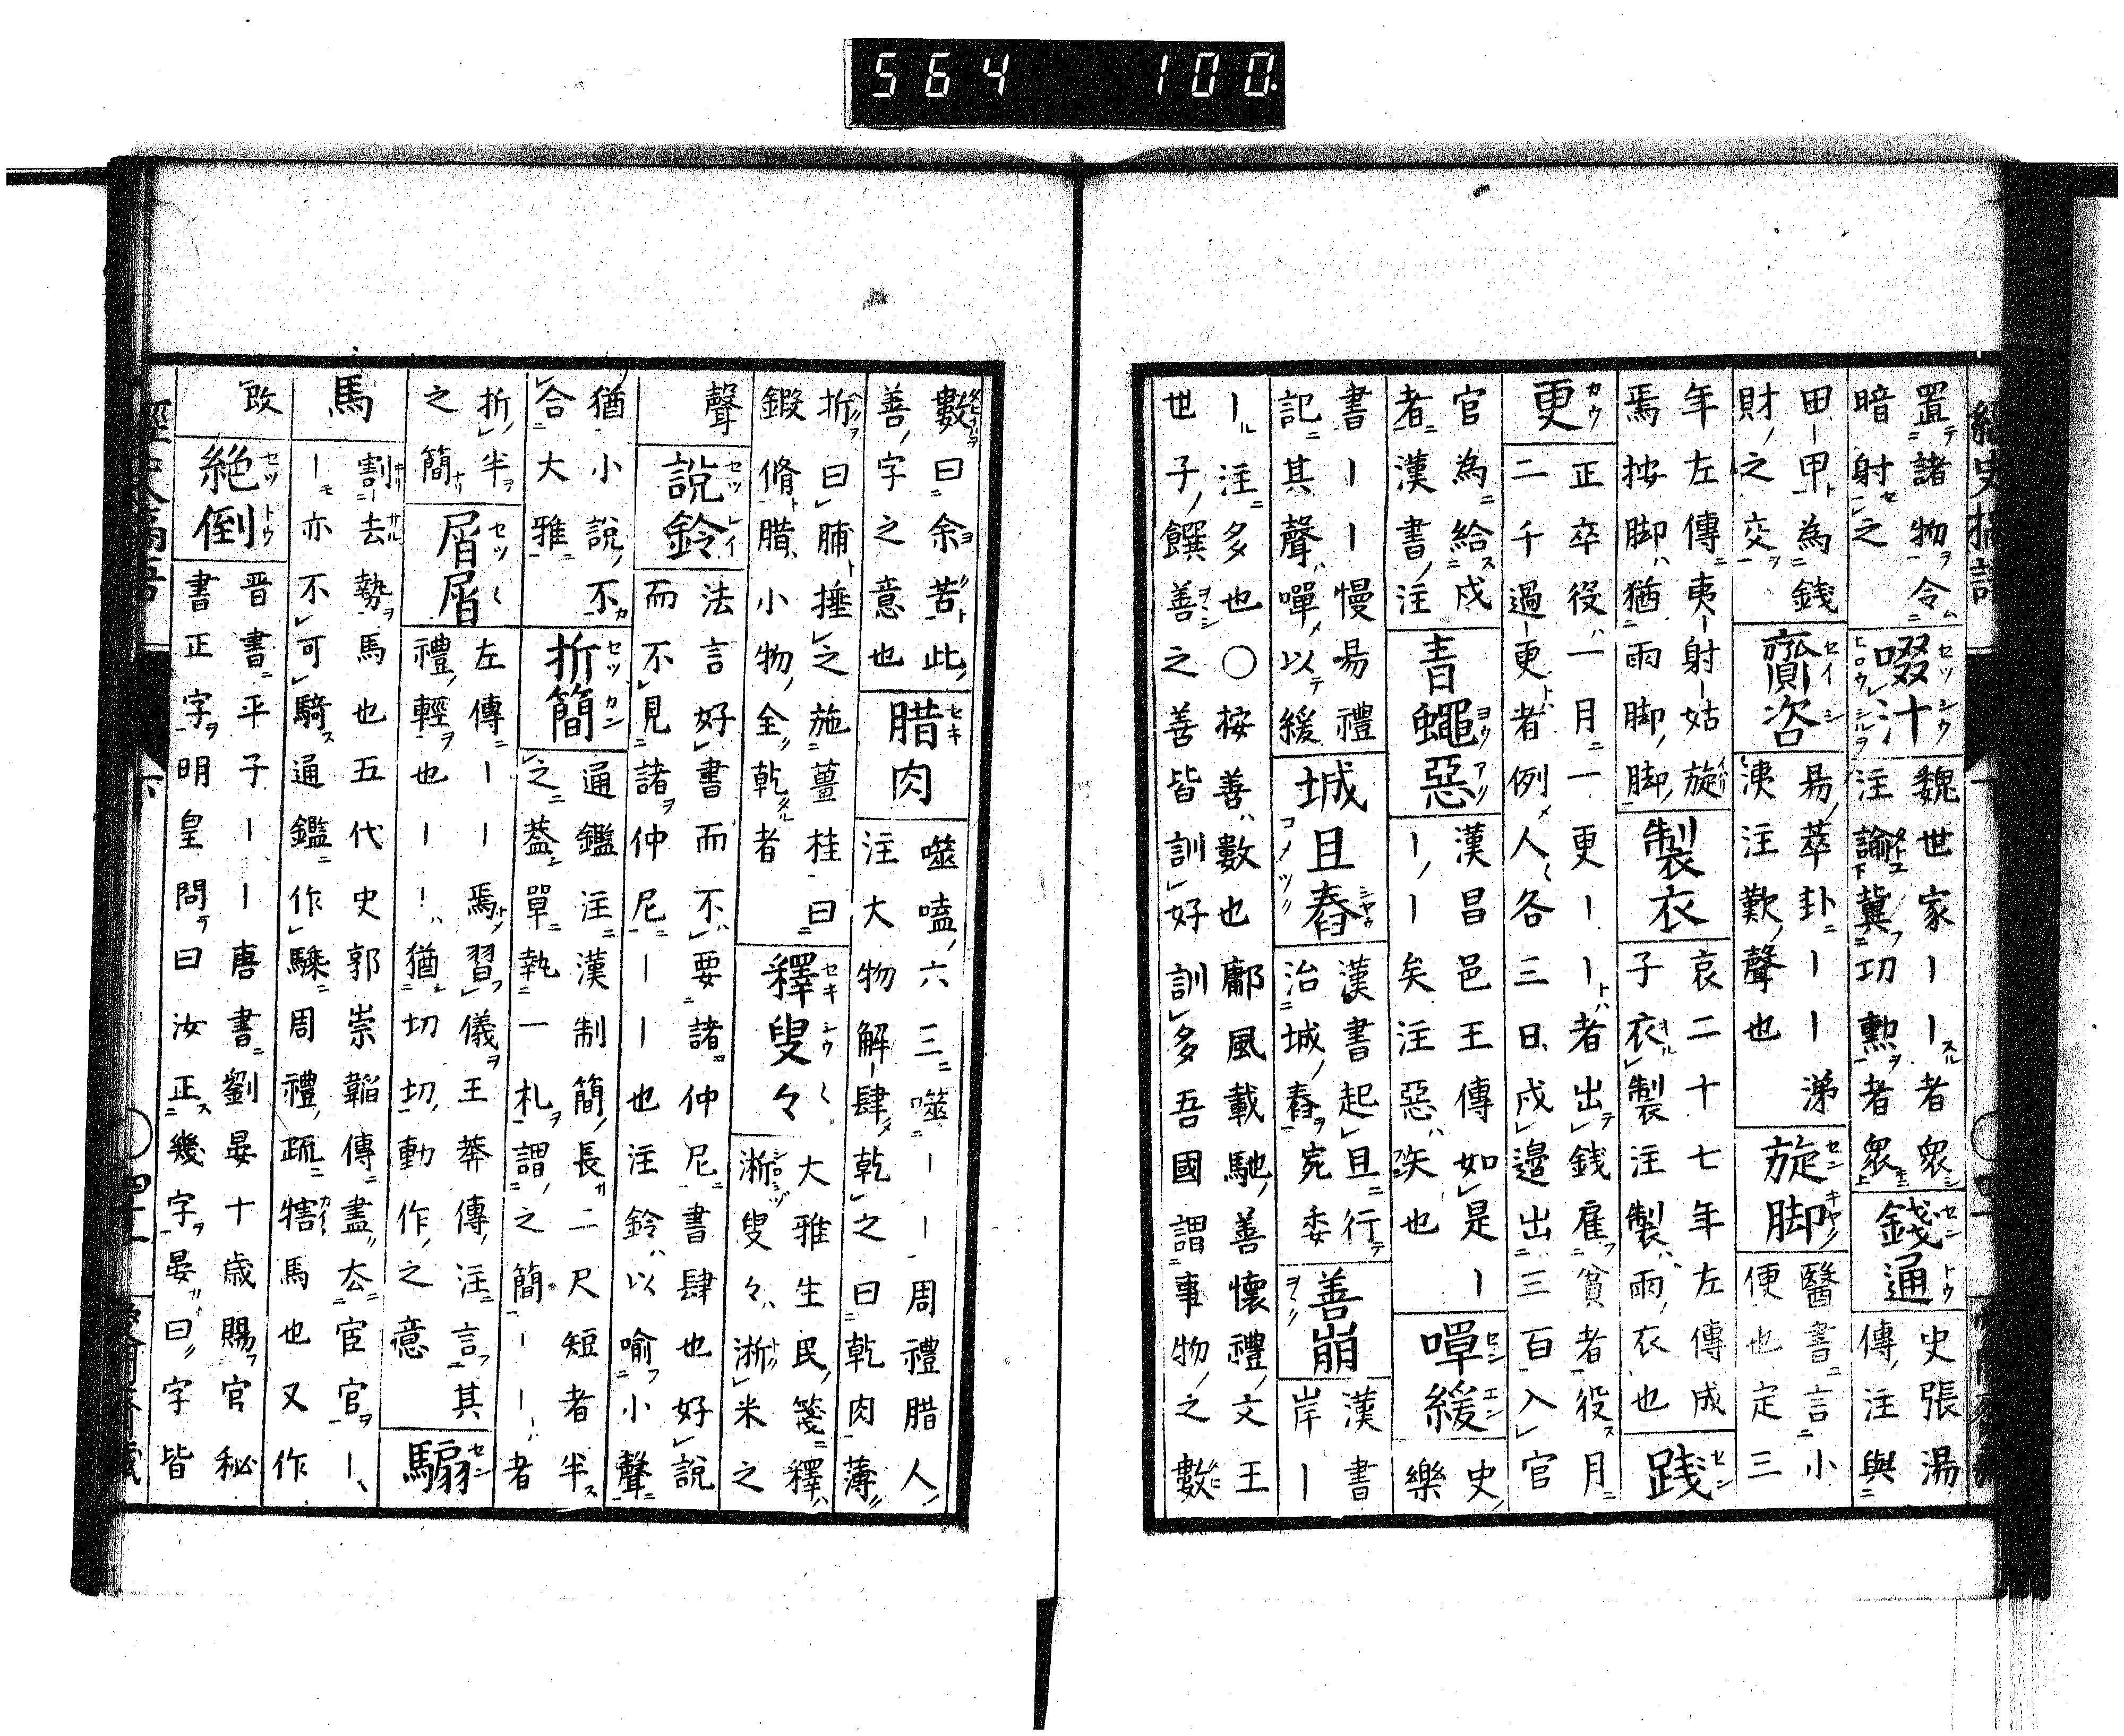 564 100
置諸物令
暗射之
啜汁
魏世家ーー者衆
注諭冀功勲者衆
錢通
史張湯
傳注與
田ー甲為銭
財之交
齎咨
易萃卦ーー涕
洟注歎聲也
旋脚
醫書言小
便也定三
年左傳夷ー射ー姑旋
焉按脚猶雨脚脚
製衣
哀二十七年左傳成
子衣製注製雨衣也
践
更
正卒役一月一更ーー者出銭雇貧者役月
二千過ー更者例人各三日戍邊出三百入官
官為給戍
者漢書注
青蠅惡
漢昌邑王傳如是ー
ーー矣注惡矢也
嘽緩
史
樂
書ーー慢易禮
記其聲嘽以緩
城且舂
漢書起且行
治城舂宛委
善崩
漢書
岸ー
ー注多也○按善數也鄘風載馳善懷禮文王
世子饌善之善皆訓好訓多吾國謂事物之數
數曰余苦此
善字之意也
腊肉
噬嗑六三噬ーー周禮腊人
注大物解ー肆乾之曰乾肉薄
折曰曰脯捶之施薑桂曰
鍛脩腊小物全乾者
釋叟々
大雅生民箋釋
淅叟々淅米之
聲
說鈴
法言好書而不要諸仲尼書肆也好說
而不見諸仲尼ーー也注鈴以喻小聲
猶小說不
合大雅
折簡
通鑑注漢制簡長二尺短者半
之蓋單執一札謂之簡ーー者
折半
之簡
屑屑
左傳ーー焉習儀王莽傳注言其
禮輕也ーー猶切切動作之意
騸
馬
割去勢馬也五代史郭崇韜傳盡去宦官ー
ー亦不可騎通鑑作騬周禮疏犗馬也又作
改
絶倒
晋書平子ーー唐書劉晏十歳賜官秘
書正字明皇問曰汝正幾字晏曰字皆